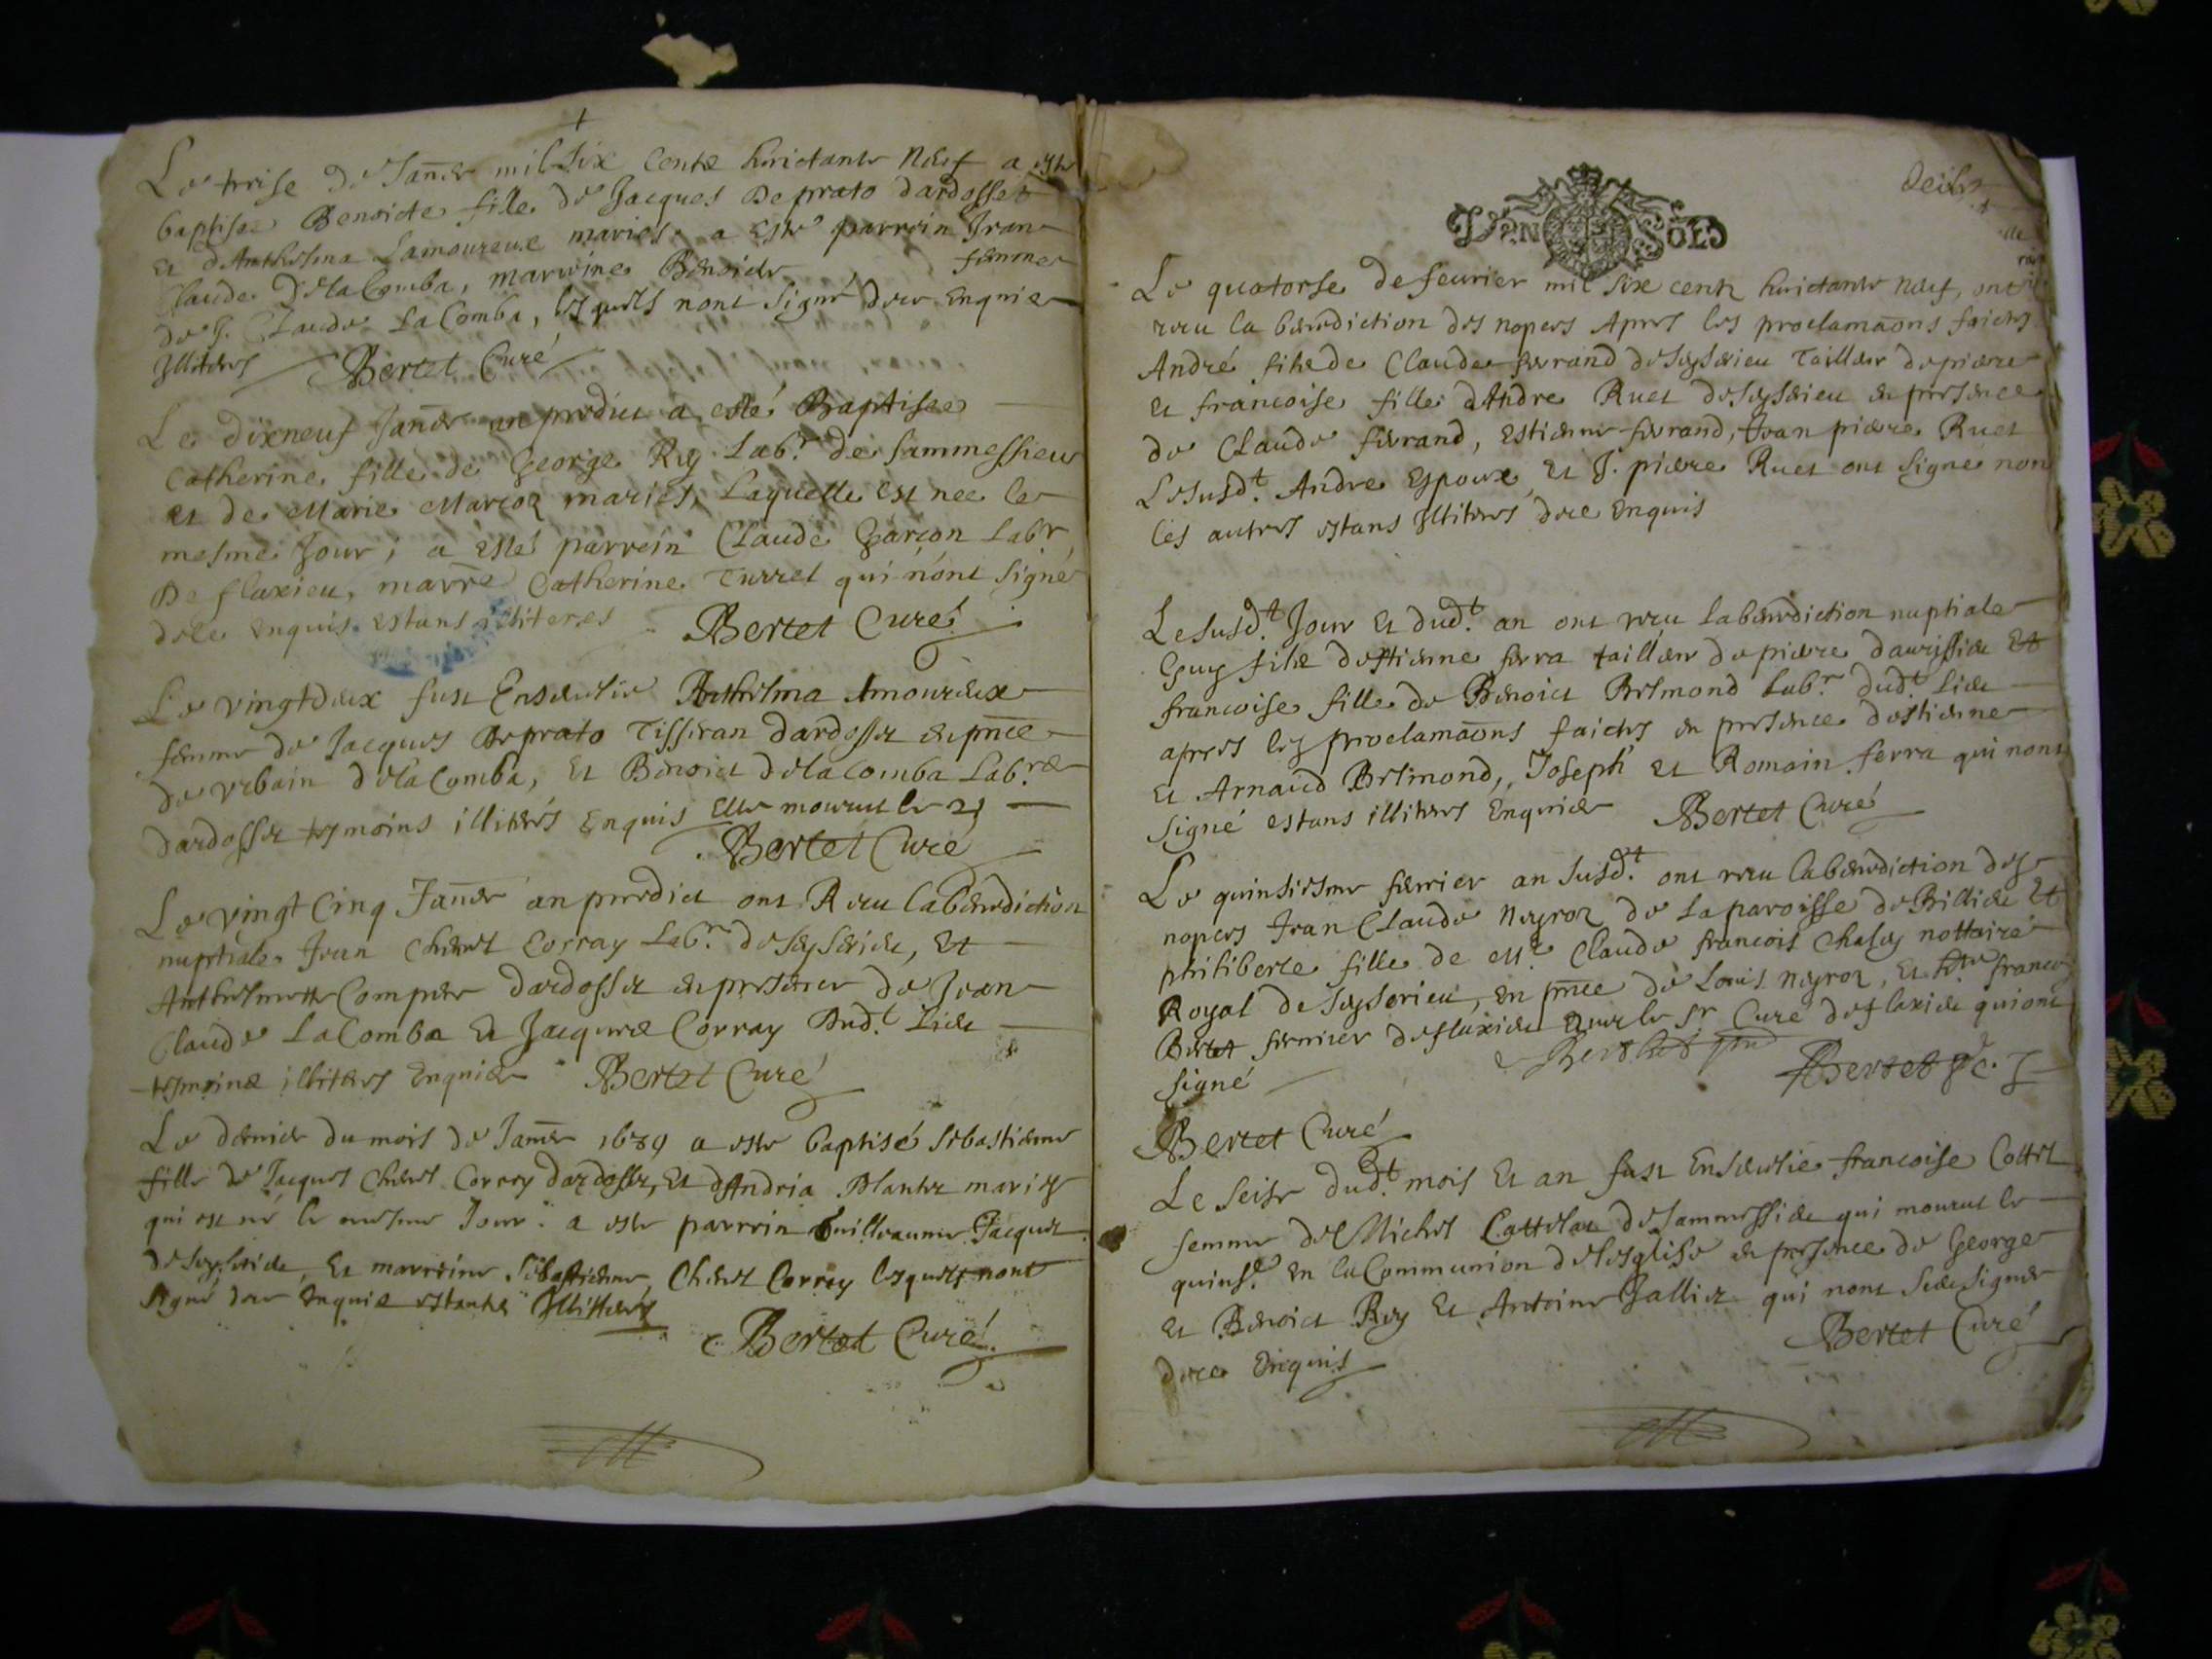 Le treise de Janer mil six cents huictante neuf a este
baptisee Benoicte fille de Jacques Deprato dardosset
et d'Anthelma Lamoureuse maries. a este parrein Jean
Claude Delacomba, marreine Benoicte femme
de J. Claude LaComba, lesquels nont signé deue enquis
Illiteres Bertet Curé
Le dixneuf Janer an predict a esté Baptisee
Catherine fille de George Rey Labr. de Sammessieu
et de Marie Marcoz maries, Laquelle est nee le
mesme Jour; a esté parrein Claude Garçon Labr
De flaxieu, marre Catherine Turrel qui n'ont signé
dece enquis estans illiteres Bertet Curé
Le vingt deux fust Ensevelie Anthelma Amoureuse
femme de Jacques Deprato Tisseran dardosset en pnce
de Urbain delaComba, et Benoict delacomba Labrs
dardosset tesmoins illiterés enquis Elle mourut le 21
Bertet Curé
Le vingt Cinq Janer an predict ont Receu la benediction
nuptiale Jean Chenet Corray Labr. de seysérieu, Et
Anthelmette Compere dardosset en presence de Jean
Claude LaComba et Jacques Corray Dudt. Lieu
tesmoins illiteres Enquis Bertet Curé
Le dernier du mois de Janer 1689 a este baptisé Sebastienne
fille de Jacques Chenet Corray dardosset, et d'Andria Blanter maries
qui est né le mesme Jour. a este parrein Guilleaume Jacquet
de seyserieu, Et marreine Sebastienne Chenet Corray lesquels nont
signé deue enquis estants Illitterés
Bertet Curé
+
DEN SOLS
deux
Le quatorse de feurier mil six cents huictante neuf, ont
receu la benediction des nopces Apres les proclamaons faictes
André fils de Claude ferrand de seyserieu Tailleur de pierre
et francoise fille d'Andre Ruet de seyserieu en presence
de Claude ferrand, Estienne ferrand, Jean pierre Ruet
Lesusdt. Andre Espoux, et J. pierre Ruet ont signé non
les autres estans illiteres dece enquis
Lesusdt. Jour et dudt. an ont receu la benediction nuptiale
Guy fils destienne ferra tailleur de pierre d'aurissieu Et
francoise fille de Benoict Belmond Labr. dudt. Lieu
apres les proclamaons faictes en presence destienne
et Arnaud Belmond, Joseph et Romain ferra qui nont
signé estans illiteres Enquis Bertet Curé
Le quinsiesme feurier an susdt. ont receu la benediction des
nopces Jean Claude Neyroz de la paroisse de Billieu Et
philiberte fille de Me. Claude francois Chaley nottaire
Royal de seyserieu, en pnce de Louis Neyroz, et francois
Bertet fermier deflaxieu avec le sr Curé deflaxieu qui ont
signé
Bertet
Bertet Curé
Le seise dudt. mois Et an fust Ensevelie francoise Cottet
femme de Michel Cattelan de sammessieu qui mourut le
quinse. en la Communion de lesglise en presence de George
et Benoict Rey et Antoine Galliet qui nont sceu signer
dece enquis Bertet Curé